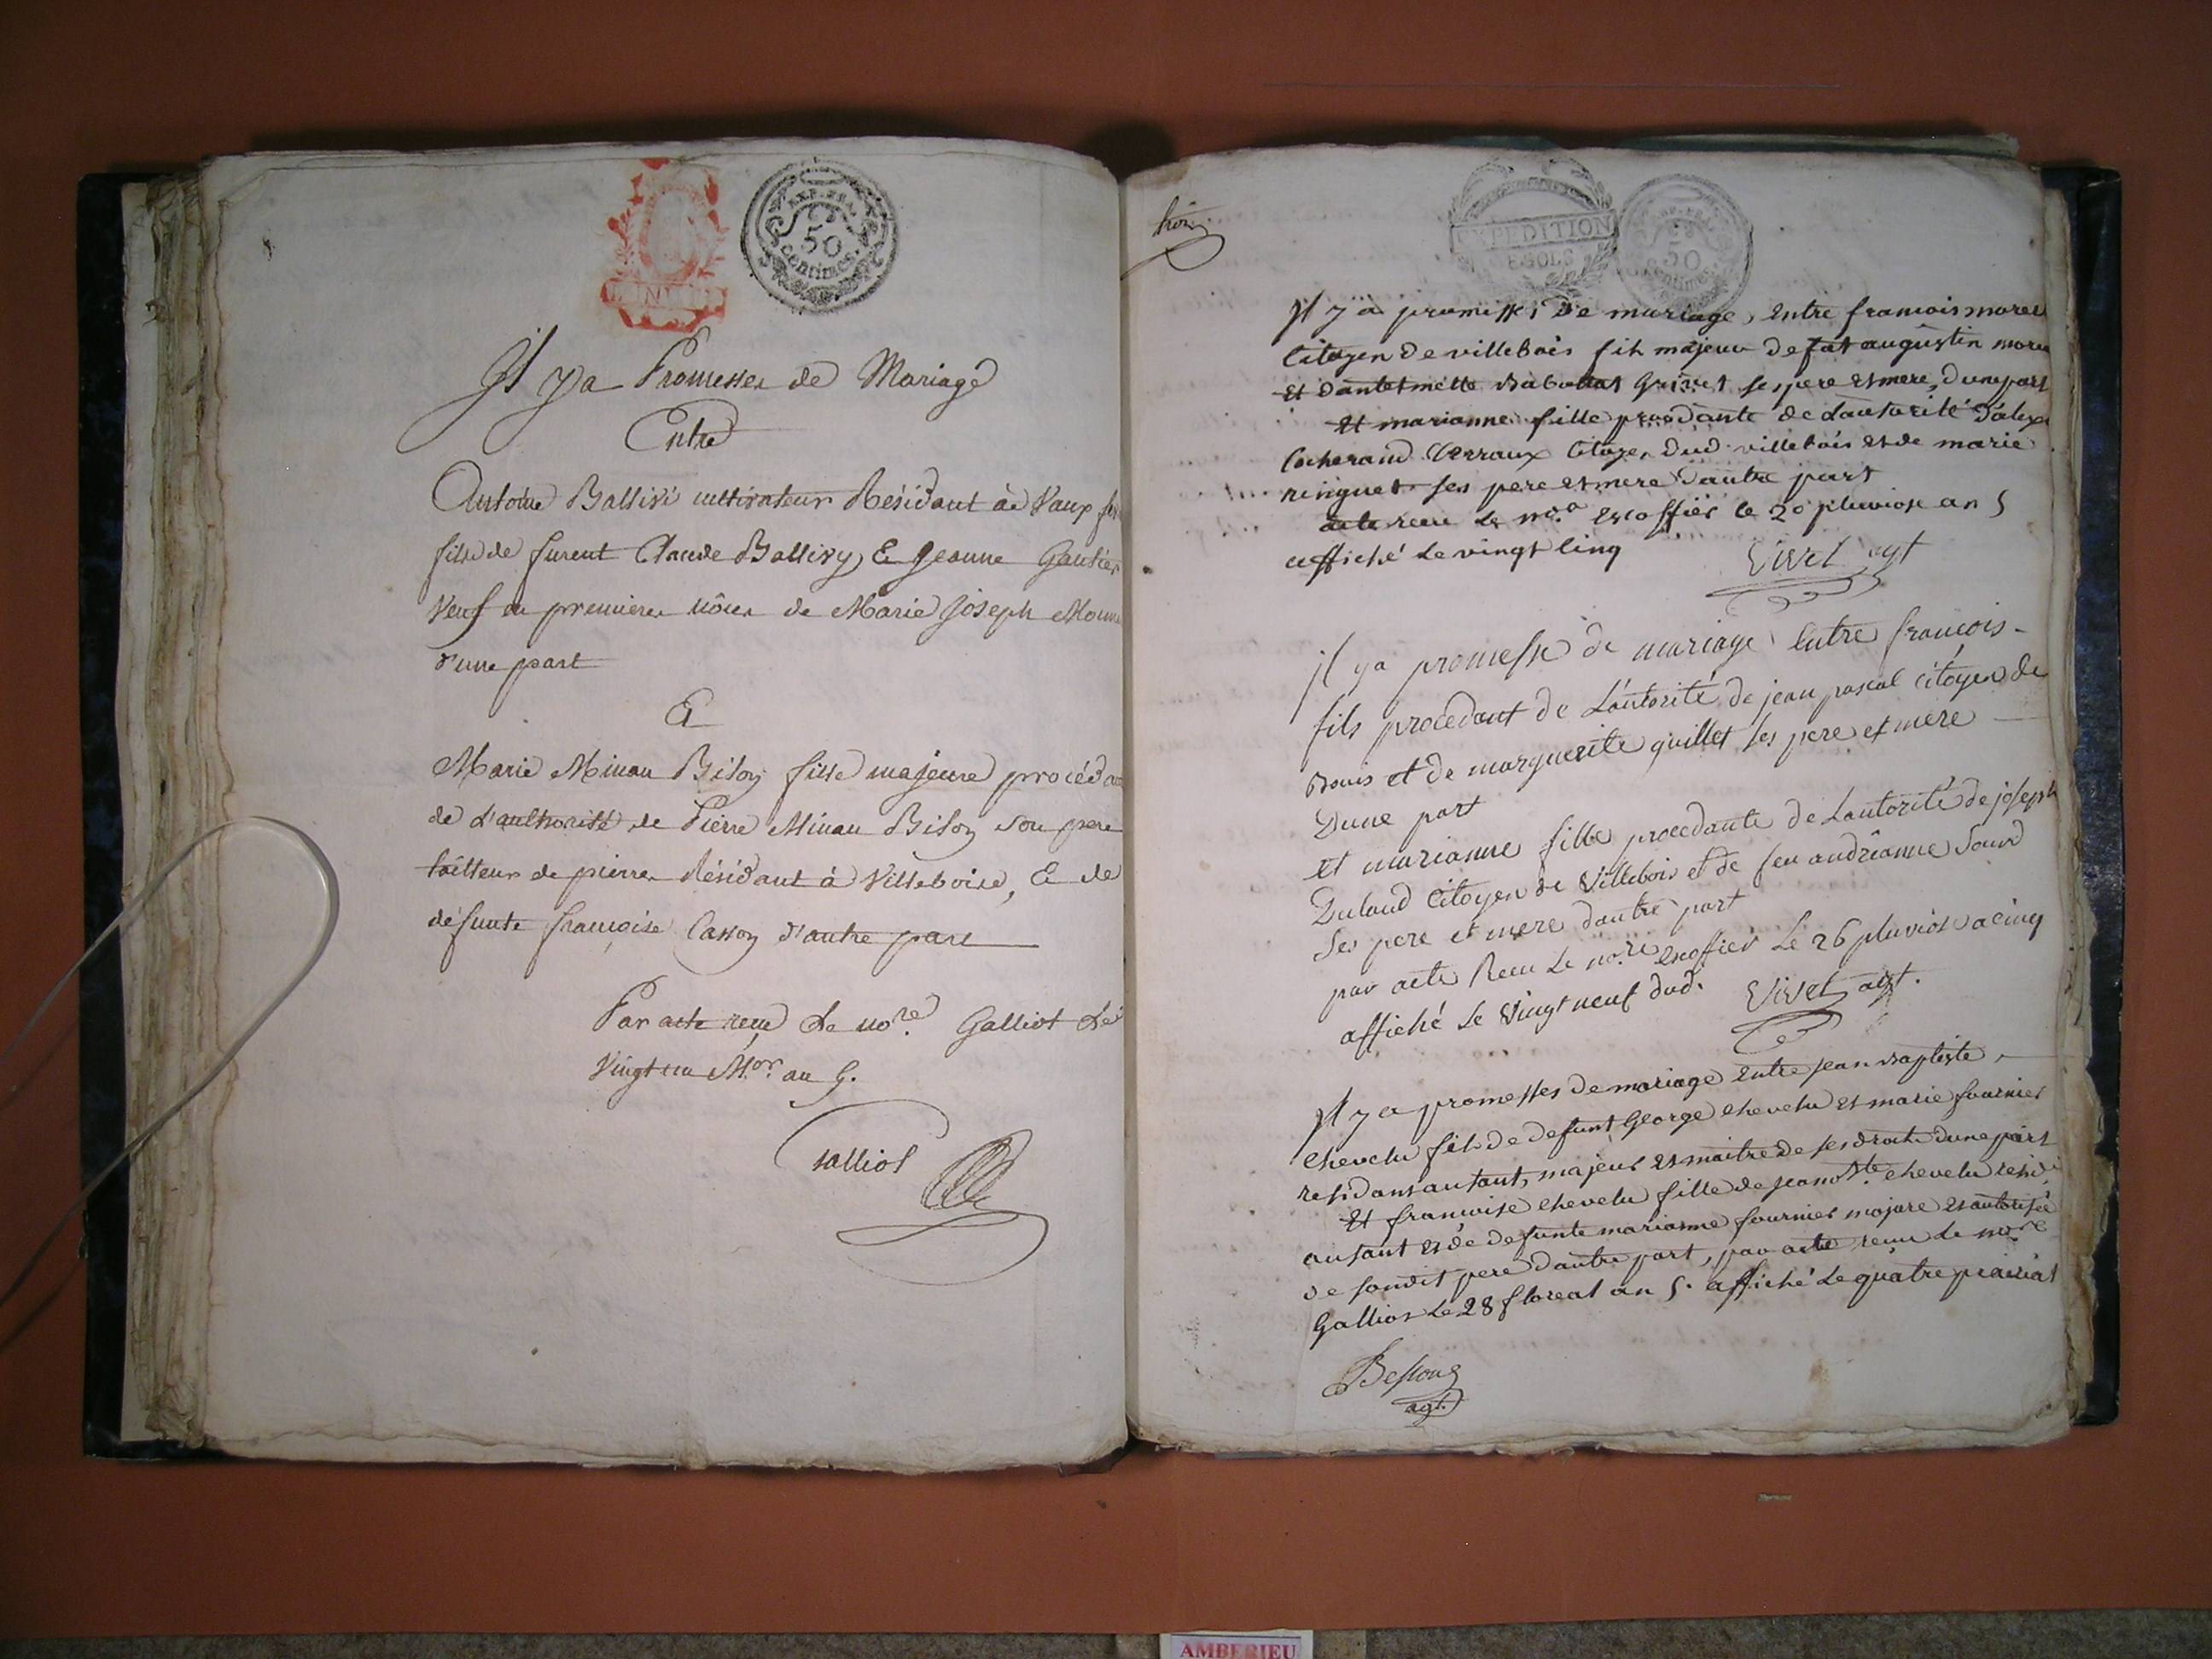 EXP. FRA.
50
Centimes
Il y a Promesses de Mariage
Entre
Antoine Ballivi cultivateur Résidant à Vaux
fils de furent Claude Ballivy, & Jeanne Gautier
Veuf en premieres nôces de Marie Joseph
d'une part
Et
Marie Minau Bison fille majeure
de l'authorité de Pierre Minau Bison son pere
tailleur de pierres Résidant à Villeboise, & de
défunte françoise Casson d'autre part
Par acte reçu de no.re Galliot Le
Vingt un M.or an 5.
Galliot
EXPEDITION
50
Centimes
Il y a promesses de mariage, entre francois morel
Citoyen de villebois fils majeur de augustin
Et Grinet ses pere et mere, dune part
Et marianne fille procedante de Lautorité
Cocherand Verraux Citoyen dud villebois et de marie
ringuet ses pere et mere dautre part
acte recu Le no.e escoffier le 20 pluviose an 5
affiché Le vingt cinq
Vivet agt
il ya promesse de mariage Entre françois
fils procedant de Lautorité de jean pascal citoyen de
Bouis et de marguerite quillet ses pere et mere
Dune part
et marianne fille procedante de Lautorité de joseph
Duland Citoyen de Villebois et de feu andrianne Sourd
Ses pere et mere dautre part
par acte Recu Le no.re escoffier Le 26 pluviose a cinq
affiché Le Vingt neuf dud.
Vivet agt.
Il y a promesses de mariage Entre jean baptiste
chevelu fils de defunt George chevelu et marie fournier
residant au sant, majeur et maitre de ses droits dune part
Et francoise chevelu fille de jean b.te chevelu resid.
au sant et de defunte marianne fournier majure et autorisée
de sondit pere dautre part, par acte reçu de no.re
Galliot Le 28 floreal an 5. affiché Le quatre prairial
Besson
agt.
AMBERIEU